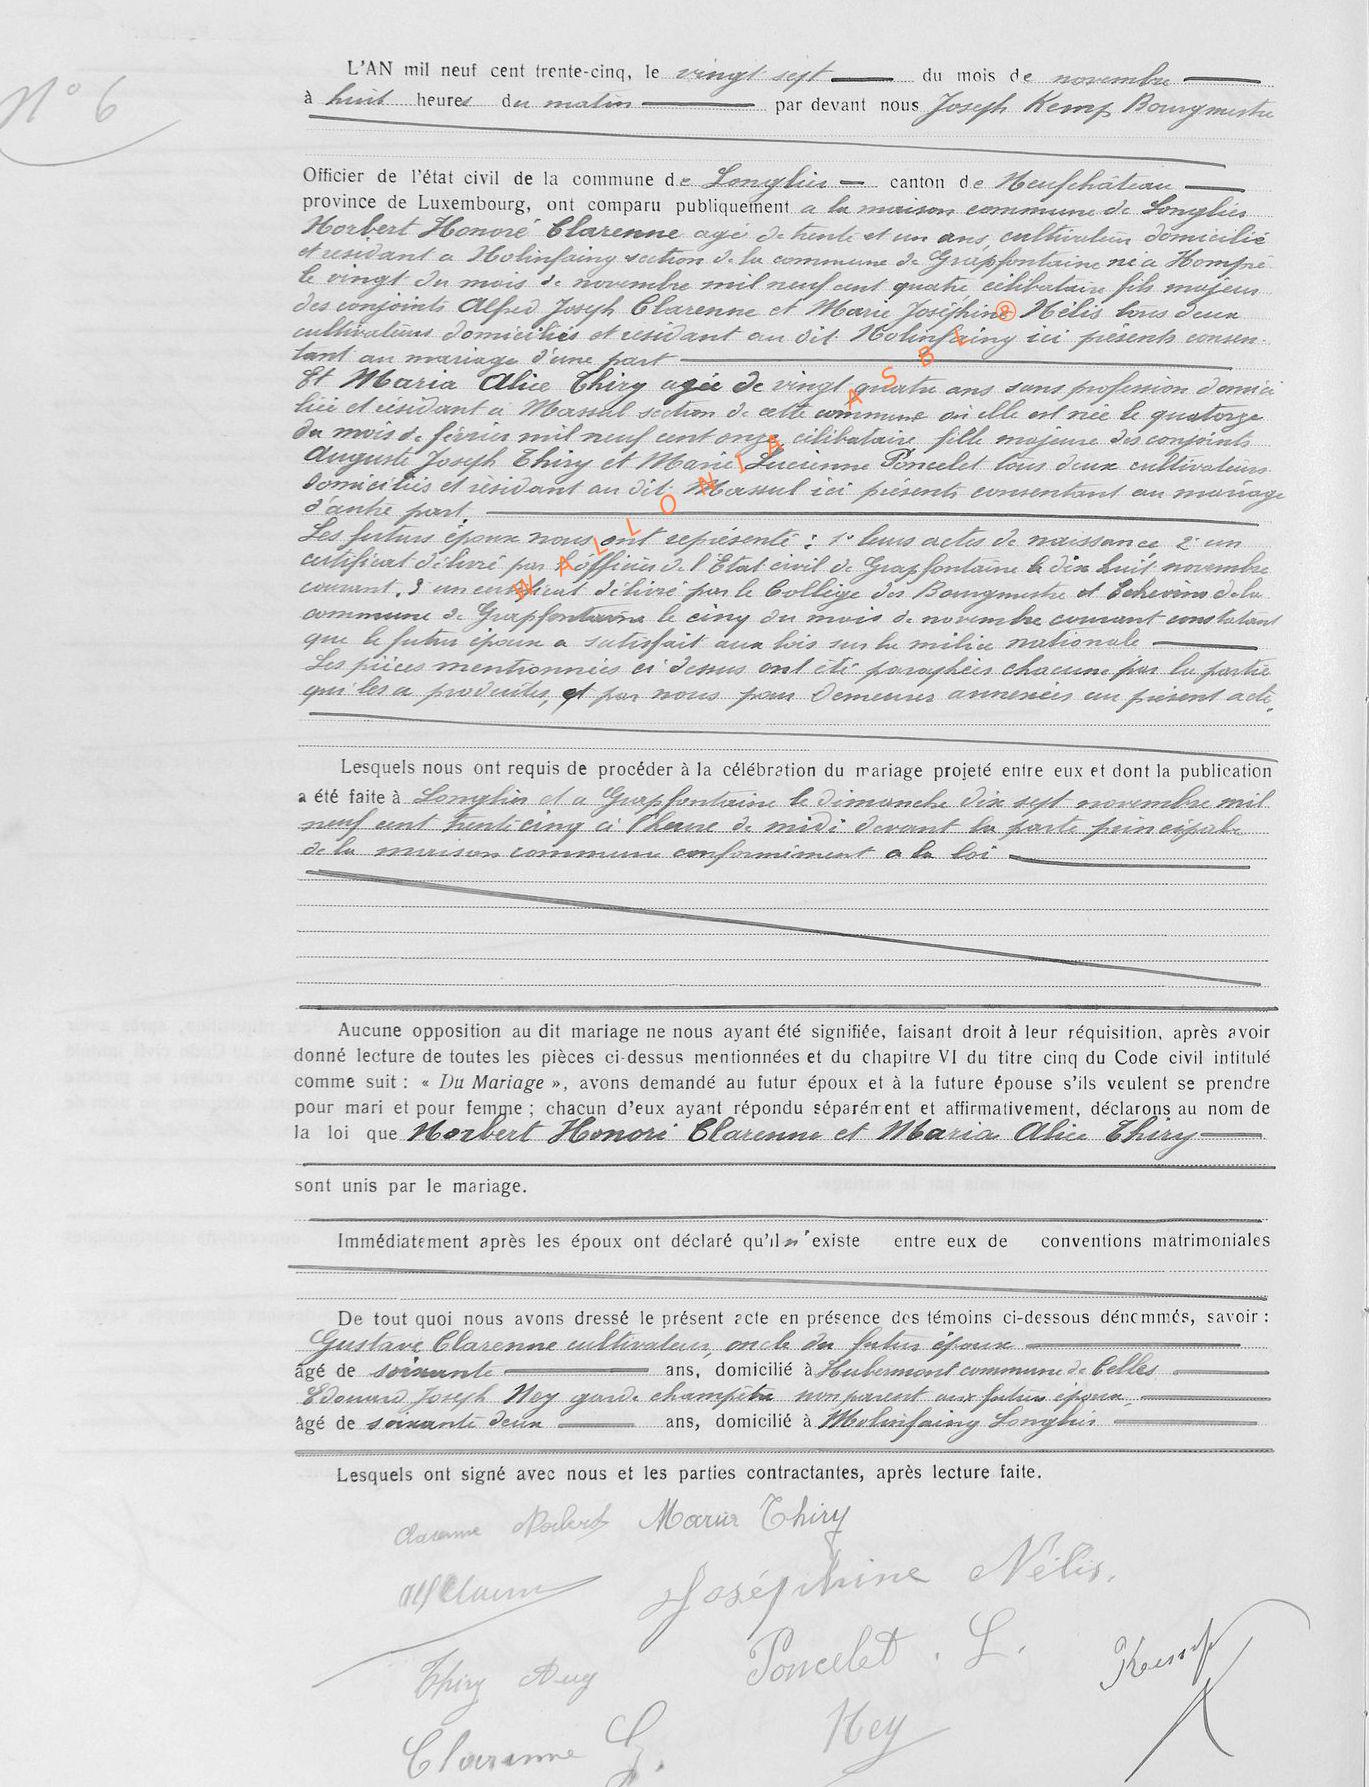 N° 6
L'AN mil neuf cent trente-cinq, le vingt sept du mois de novembre
à huit heures du matin par devant nous Joseph Kemp Bourgmestre
Officier de l'état civil de la commune de Longlier canton de Neufchâteau
province de Luxembourg, ont comparu publiquement a la maison commune de Longlier
Norbert Honoré Clarenne agé de trente et un ans, cultivateur domicilié
et résidant a Molinfaing section de la commune de Grapfontaine né a Hompré
le vingt du mois de novembre mil neuf cent quatre célibataire fils majeur
des conjoints Alfred Joseph Clarenne et Marie Joséphine Nélis tous deux
cultivateurs domiciliés et résidant au dit Molinfaing ici présents consen-
tant au mariage d'une part
Et Maria Alice Thiry agée de vingt quatre ans sans profession domici
liée et résidant a Massul section de cette commune où elle est née le quatorze
du mois de février mil neuf cent onze célibataire fille majeure des conjoints
Auguste Joseph Thiry et Marie Lucienne Poncelet tous deux cultivateurs
domiciliés et résidant au dit Massul ici présents consentant au mariage
d'autre part.
Les futurs époux nous ont représenté : 1° leurs actes de naissance 2° un
certificat délivré par l'officier de l'Etat civil de Grapfontaine le dix huit novembre
courant. 3 un certificat délivré par le Collège des Bourgmestre et Echevins de la
commune de Grapfontaine le cinq du mois de novembre courant constatant
que le futur époux a satisfait aux lois sur la milice nationale
Les pièces mentionnées ci dessus ont été paraphées chacune par la partie
qui les a produites, et par nous pour demeurer annexées au présent acte.
Lesquels nous ont requis de procéder à la célébration du mariage projeté entre eux et dont la publication
a été faite à Longlier et a Grapfontaine le dimanche dix sept novembre mil
neuf cent trente cinq a l'heure de midi devant la porte principale
de la maison commune conformément a la loi
Aucune opposition au dit mariage ne nous ayant été signifiée, faisant droit à leur réquisition, après avoir
donné lecture de toutes les pièces ci-dessus mentionnées et du chapitre VI du titre cinq du Code civil intitulé
comme suit : « Du Mariage », avons demandé au futur époux et à la future épouse s'ils veulent se prendre
pour mari et pour femme ; chacun d'eux ayant répondu séparément et affirmativement, déclarons au nom de
la loi que Norbert Honoré Clarenne et Maria Alice Thiry
sont unis par le mariage.
Immédiatement après les époux ont déclaré qu'il n'existe entre eux de conventions matrimoniales
De tout quoi nous avons dressé le présent acte en présence des témoins ci-dessous dénommés, savoir :
Gustave Clarenne cultivateur, oncle du futur époux
âgé de soixante ans, domicilié à Hubermont commune de Celles
Edouard Joseph Ney garde champêtre non parent aux futurs époux,
âgé de soixante deux ans, domicilié à Molinfaing Longlier
Lesquels ont signé avec nous et les parties contractantes, après lecture faite.
Clarenne Norbert Maria Thiry
Alf Clarenne Joséphine Nélis.
Thiry Aug Poncelet. L. Kemp
Clarenne G. Ney
WALLONIA ASBL ®